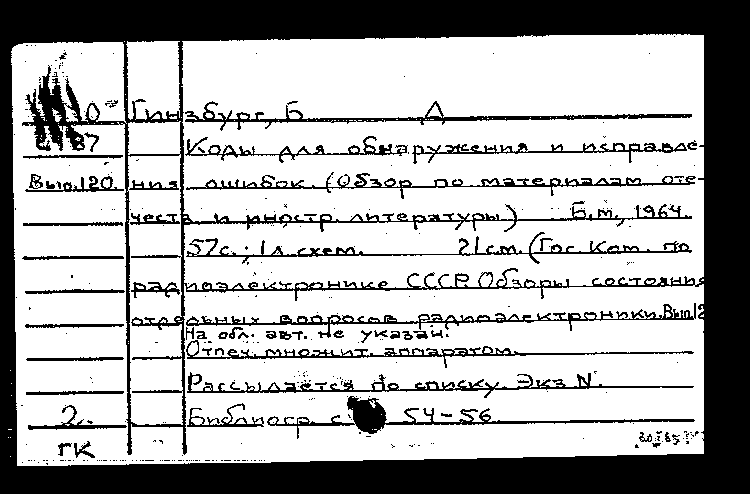 Гинзбург, Б А
87 Коды для обнаружения и исправле-
Вып.120 ния ошибок. (Обзор по материалам оте-
честв. и иностр. литературы) Б.м., 1964.
57с.; 1л. схем. 21см. (Гос. Ком. по
радиоэлектронике СССР. Обзоры состояния
отдельных вопросов радиоэлектроники. Вып.12
На обл. авт. не указан.
Отпеч. множит. аппаратом.
Рассылается по списку. Экз N.
2. Библиогр. с 54-56
ГК